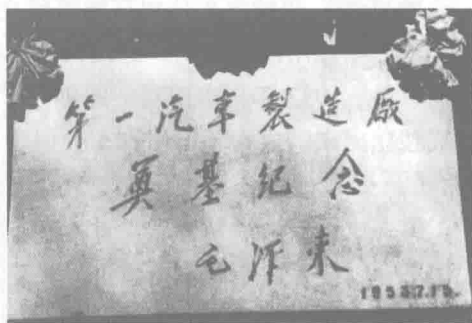 第一汽车製造廠
奠基紀念
毛泽东
1953.7.15.